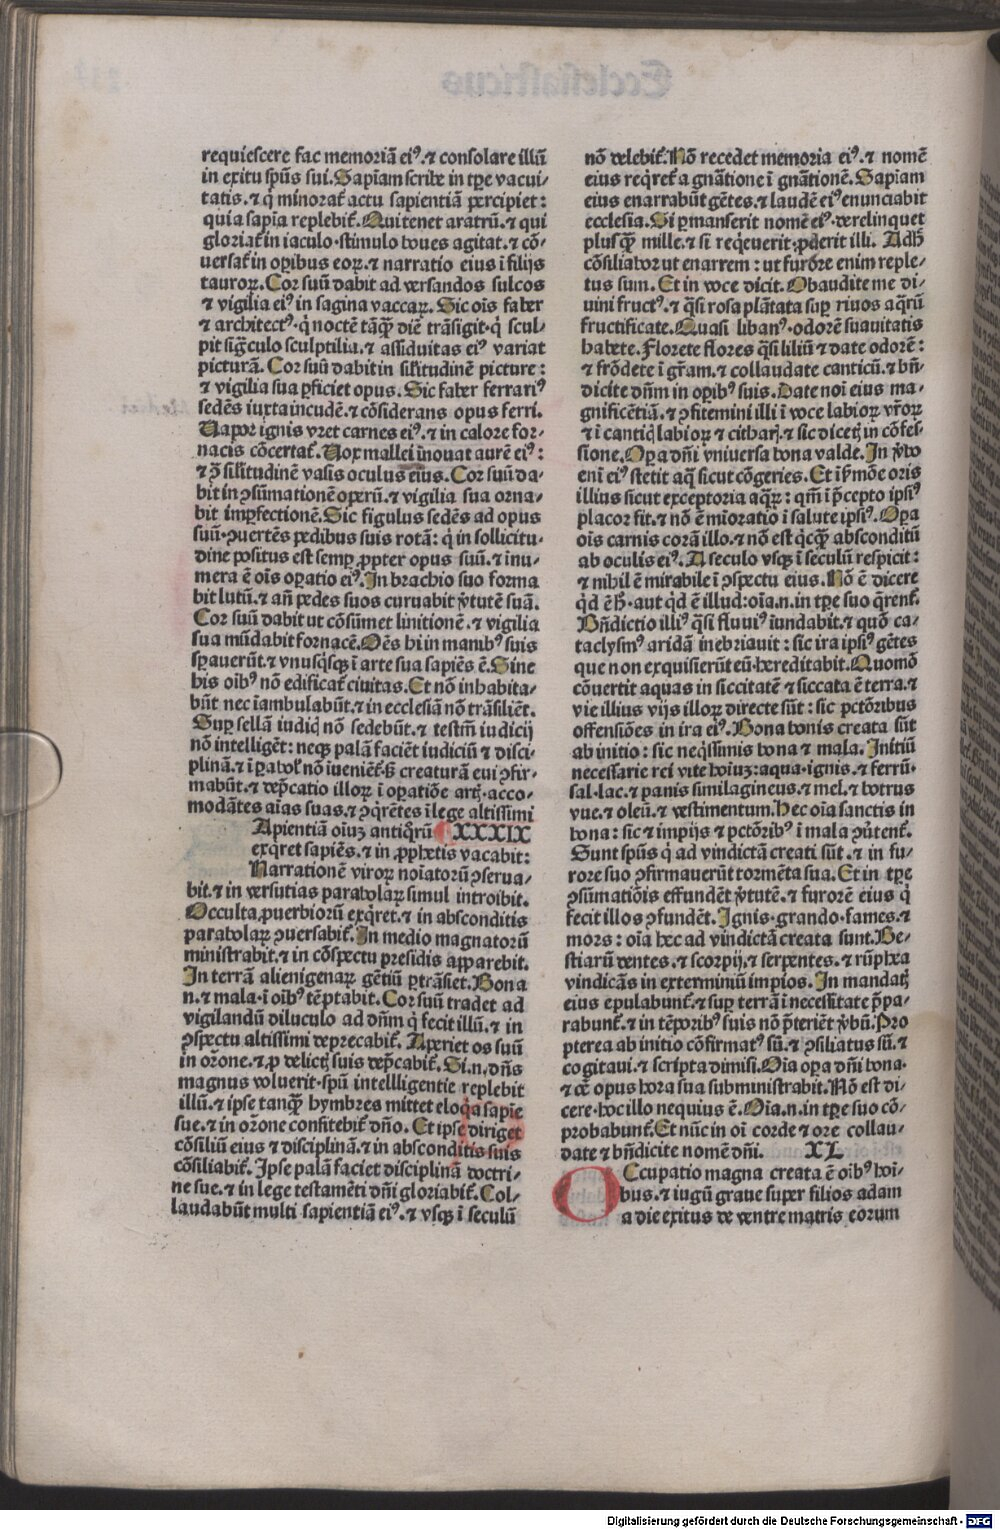 requiescere fac memoriã eiꝰ.⁊ consolare illũ
in exitu sp̃us sui.Sapiam scribe in tp̃e vacui⸗
tatis.⁊ q̇ minorat̃ actu sapientiã percipiet:
quia sapĩa replebit̃.Qui tenet aratrũ.⁊ qui
gloriat̃ in iaculo·stimulo boues agitat.⁊ cõ⸗
uersat̃ in oꝑibus eoꝝ.⁊ narratio eius ĩ filijs
tauroꝝ.Cor suũ dabit ad versandos sulcos
⁊ vigilia eiꝰ in sagina vaccaꝝ.Sic oĩs faber
⁊ architectꝰ·q̇ noctẽ tãq̃ʒ diẽ trãsigit·q̇ scul⸗
pit sig̃culo sculptilia.⁊ assiduitas eiꝰ variat
picturã.Cor suũ dabit in sil̃itudinẽ picture:
⁊ vigilia sua ꝑficiet opus.Sic faber ferrariꝰ
sedẽs iuxta incudẽ.⁊ cõsiderans opus ferri.
Uapor ignis vret carnes eiꝰ.⁊ in calore for⸗
nacis cõcertat̃.Uox mallei ĩnouat aurẽ eiꝰ:
⁊ ꝯ̃ sil̃itudinẽ vasis oculus eius.Cor suũ da⸗
bit in ꝯsũmationẽ operũ.⁊ vigilia sua orna⸗
bit imꝑfectionẽ.Sic figulus sedẽs ad opus
suũ·ꝯuertẽs pedibus suis rotã: q̇ in sollicitu⸗
dine positus est semꝑ ꝓpter opus suũ.⁊ ĩnu⸗
mera ẽ oĩs oꝑatio eiꝰ.In brachio suo forma
bit lutũ.⁊ añ pedes suos curuabit v̇tutẽ suã.
Cor suũ dabit ut cõsũmet linitionẽ.⁊ vigilia
sua mũdabit fornacẽ.Oẽs hi in manibꝰ suis
sꝑauerũt.⁊ vnusq̇sqʒ ĩ arte sua sapiẽs ẽ.Sine
his oĩbꝰ nõ edificat̃ ciuitas.Et nõ inhabita⸗
bũt nec ĩambulabũt.⁊ in ecclesiã nõ trãsiliẽt.
Suꝑ sellã iudiq̇ nõ sedebũt.⁊ testm̃ iudicij
nõ intelligẽt: neqʒ palã faciẽt iudiciũ ⁊ disci⸗
plinã.⁊ ĩ ꝑabol̃ nõ ĩueniẽt̃.sʒ creaturã eui ꝯfir⸗
mabũt.⁊ dep̃catio illoꝝ ĩ oꝑatiõe artꝭ.acco⸗
modãtes aĩas suas.⁊ ꝯq̇rẽtes ĩ lege altissimi
Apientiã oĩuʒ antiq̇rũ XXXIX
exq̇ret sapiẽs.⁊ in ꝓphetis vacabit:
Narrationẽ viroꝝ noĩatorũ ꝯserua⸗
bit.⁊ in versutias parabolaꝝ simul introibit.
Occulta ꝓuerbiorũ exq̇ret.⁊ in absconditis
parabolaꝝ ꝯuersabit̃.In medio magnatorũ
ministrabit.⁊ in cõspectu presidis apparebit.
In terrã alienigenaꝝ gẽtiũ ꝑtrãsiet.Bona
n.⁊ mala·ĩ oĩbꝰ tẽptabit.Cor suũ tradet ad
vigilandũ diluculo ad dñm q̇ fecit illũ.⁊ in
ꝯspectu altissimi deprecabit̃.Aperiet os suũ
in or̃one.⁊ ꝓ delictꝭ suis dep̃cabit̃.Si.n.dñs
magnus voluerit·spũ intellligentie replebit
illũ.⁊ ipse tanq̃ʒ hymbres mittet eloq̃a sapĩe
sue.⁊ in or̃one confitebit̃ dño.Et ipse diriget
cõsiliũ eius ⁊ disciplinã.⁊ in absconditis suis
cõsiliabit̃.Ipse palã faciet disciplinã doctri⸗
ne sue.⁊ in lege testamẽti dñi gloriabit̃.Col⸗
laudabũt multi sapientiã eiꝰ.⁊ vsqʒ ĩ seculũ
nõ delebit̃.Nõ recedet memoria eiꝰ.⁊ nomẽ
eius req̇ret̃ a gñatione ĩ gñationẽ.Sapĩam
eius enarrabũt gẽtes.⁊ laudẽ eiꝰ enunciabit
ecclesia.Si ꝑmanserit nomẽ eiꝰ·derelinquet
plusq̃ʒ mille.⁊ si req̇euerit·ꝓderit illi. Adh̃
cõsiliabor ut enarrem: ut furõre enim reple⸗
tus sum.Et in voce dicit.Obaudite me di⸗
uini fructꝰ.⁊ q̃si rosa plãtata suꝑ riuos aq̃rũ
fructificate.Quasi libanꝰ·odorẽ suauitatis
habete.Florete flores q̃si liliũ ⁊ date odorẽ:
⁊ frõdete ĩ gr̃am.⁊ collaudate canticũ.⁊ bñ⸗
dicite dñm in oꝑibꝰ suis.Date noĩ eius ma⸗
gnificẽtiã.⁊ ꝯfitemini illi ĩ voce labioꝝ vr̃oꝝ
⁊ ĩ cantiq̇ labioꝝ ⁊ citharꝭ.⁊ sic dicetꝭ in cõfes⸗
sione.Oꝑa dñi vniuersa bona valde.In v̇bo
eni eiꝰ stetit aq̃ sicut cõgeries.Et ĩ s̃mõe oris
illius sicut exceptoria aq̃ꝝ: qm̃ ĩ p̃cepto ipsiꝰ
placor fit.⁊ nõ ẽ mĩoratio ĩ salute ipsiꝰ.Oꝑa
oĩs carnis corã illo.⁊ nõ est q̇cq̃ʒ absconditũ
ab oculis eiꝰ.A seculo vsqʒ ĩ seculũ respicit:
⁊ nihil ẽ mirabile ĩ ꝯspectu eius.Nõ ẽ dicere
q̇d ẽ h̃·aut q̇d ẽ illud:oĩa.n.in tp̃e suo q̃rent̃.
Bñdictio illiꝰ q̃si fluuiꝰ ĩundabit.⁊ quõ ca⸗
taclysmꝰ aridã inebriauit: sic ira ipsiꝰ gẽtes
que non exquisierũt eũ·hereditabit.Quomõ
cõuertit aquas in siccitatẽ ⁊ siccata ẽ terra.⁊
vie illius vijs illoꝝ directe sũt: sic pctõribus
offensiões in ira eiꝰ.Bona bonis creata sũt
ab initio: sic neq̇ssimis bona ⁊ mala.Initiũ
necessarie rei vite hoiuʒ:aqua·ignis.⁊ ferrũ·
sal·lac.⁊ panis similagineus.⁊ mel.⁊ botrus
vue.⁊ oleũ.⁊ vestimentum.Hec oĩa sanctis in
bona: sic ⁊ impijs ⁊ pctõribꝰ ĩ mala ꝯũtent̃.
Sunt spũs q̇ ad vindictã creati sũt.⁊ in fu⸗
rore suo ꝯfirmauerũt tormẽta sua.Et in tp̃e
ꝯsũmatiõis effundẽt v̇tutẽ.⁊ furorẽ eius q̇
fecit illos ꝯfundẽt.Ignis·grando·fames.⁊
mors: oĩa hec ad vindictã creata sunt.Be⸗
stiarũ dentes.⁊ scorpij.⁊ serpentes.⁊ rũphea
vindicãs in exterminiũ impios.In mandatꝭ
eius epulabunt̃.⁊ suꝑ terrã ĩ necessitate p̃pa⸗
rabunt̃.⁊ in tẽporibꝰ suis nõ p̃teriẽt v̇bũ.Pro
pterea ab initio cõfirmatꝰ sũ.⁊ ꝯsiliatus sũ.⁊
cogitaui.⁊ scripta dimisi.Oĩa oꝑa dñi bona·
⁊ oẽ opus hora sua subministrabit.Nõ est di⸗
cere·hoc illo nequius ẽ.Oĩa.n.in tp̃e suo cõ⸗
probabunt̃.Et nũc in oĩ corde ⁊ ore collau⸗
date ⁊ bñdicite nomẽ dñi. XL
OCcupatio magna creata ẽ oĩbꝰ hoĩ⸗
bus.⁊ iugũ graue super filios adam
a die exitus de ventre matris eorum
Digitalisierung gefördert durch die Deutsche Forschungsgemeinschaft - DFG